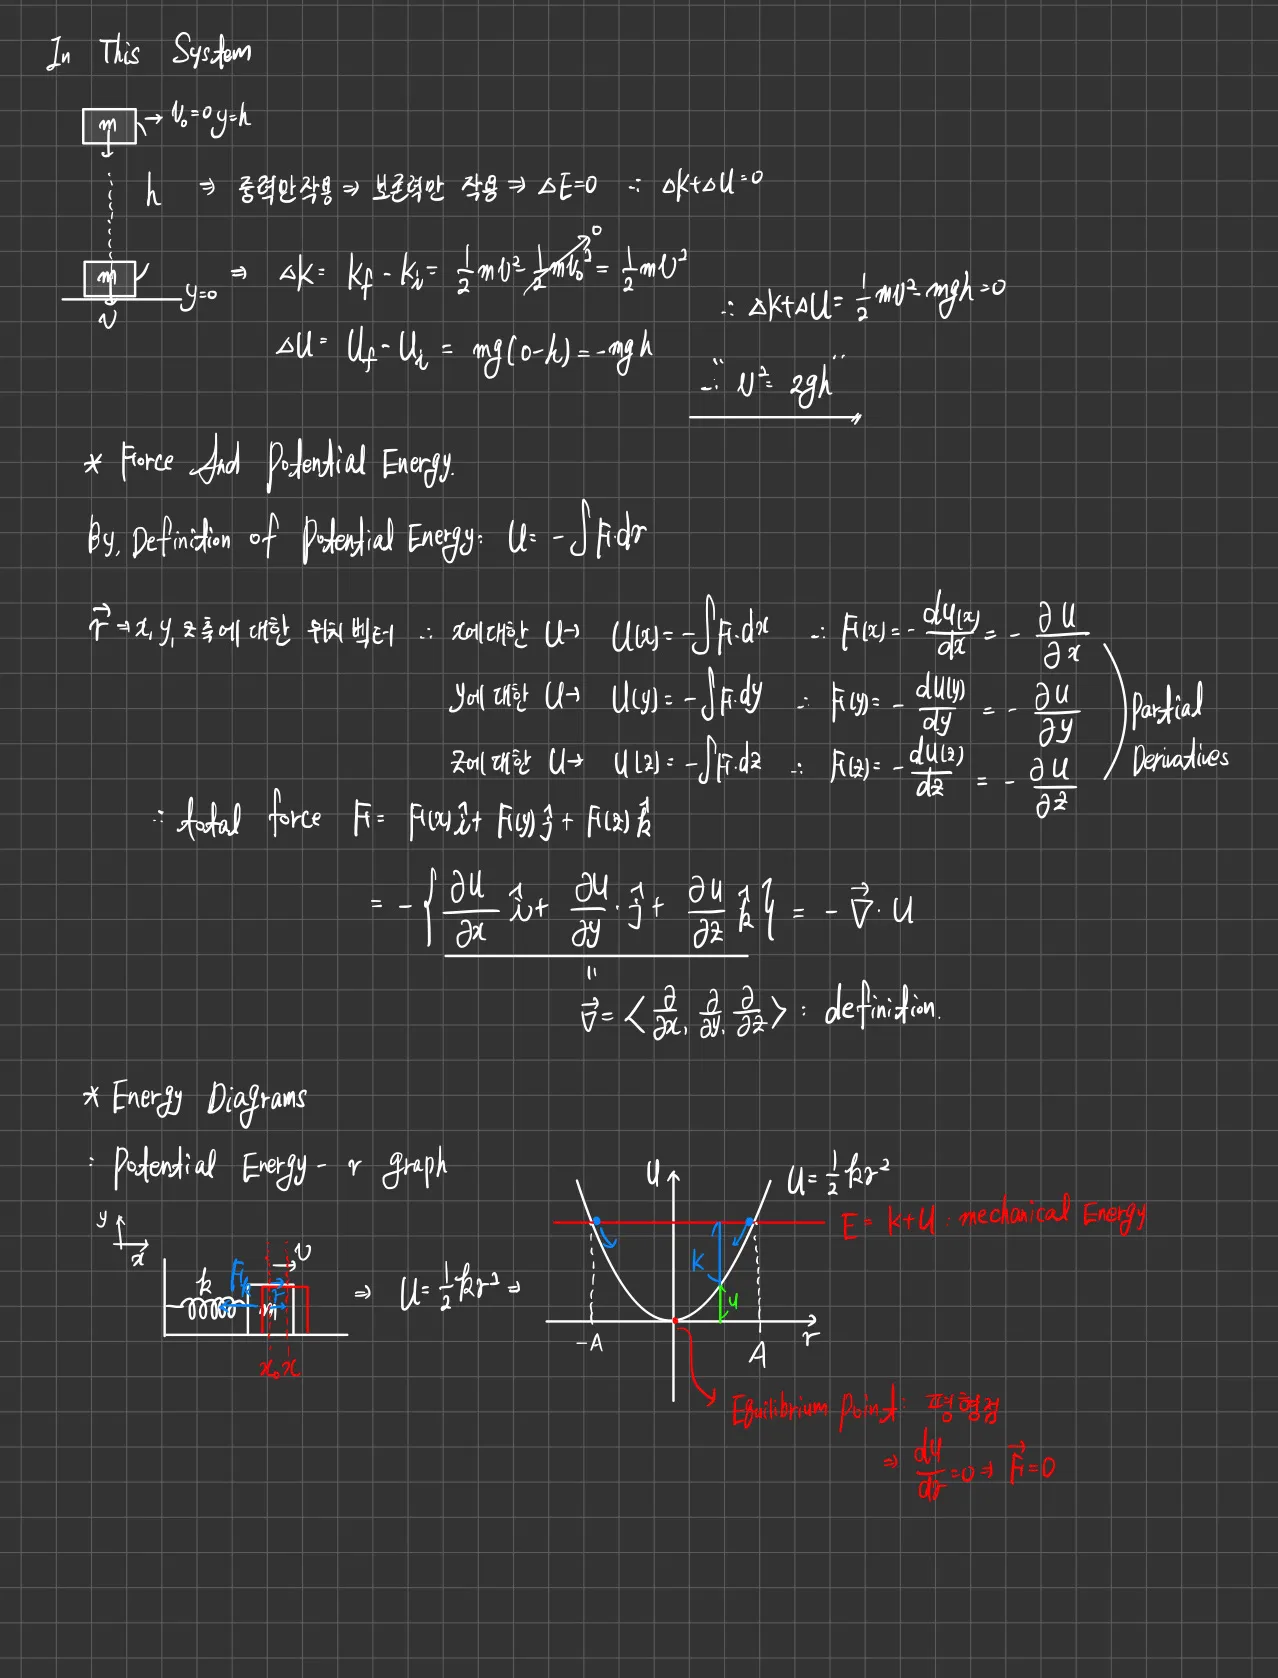 In This System
m → v₀=0 y=h
h ⇒ 중력만 작용 ⇒ 보존력만 작용 ⇒ ΔE=0 ∴ ΔK+ΔU=0
m y=0 v
⇒ ΔK= K_f - K_i = 1/2 mv² - 1/2 mv₀² 0 = 1/2 mv²
ΔU= U_f - U_i = mg(0-h) = -mgh
∴ ΔK+ΔU= 1/2 mv² - mgh=0
∴ "v²= 2gh"
* Force And Potential Energy.
By, Definition of Potential Energy: U= -∫F·dr
r⃗ → x, y, z축에 대한 위치 벡터 ∴ x에 대한 U→ U(x)= -∫F·dx ∴ F(x)= - dU(x)/dx = - ∂U/∂x
y에 대한 U→ U(y)= -∫F·dy ∴ F(y)= - dU(y)/dy = - ∂U/∂y
z에 대한 U→ U(z)= -∫F·dz ∴ F(z)= - dU(z)/dz = - ∂U/∂z
Partial
Derivatives
∴ total force F= F(x)î + F(y)ĵ + F(z)k̂
= -{∂U/∂x î + ∂U/∂y · ĵ + ∂U/∂z k̂} = - ∇⃗ · U
=
∇⃗ = <∂/∂x, ∂/∂y, ∂/∂z> : definition.
* Energy Diagrams
: Potential Energy - r graph
y x
k F_k m F v
x₀ x
⇒ U= 1/2 kr² ⇒
U U= 1/2 kr²
E = K+U : mechanical Energy
K
U
-A A r
Equilibrium point : 평형점
⇒ dU/dr =0 ⇒ F⃗=0